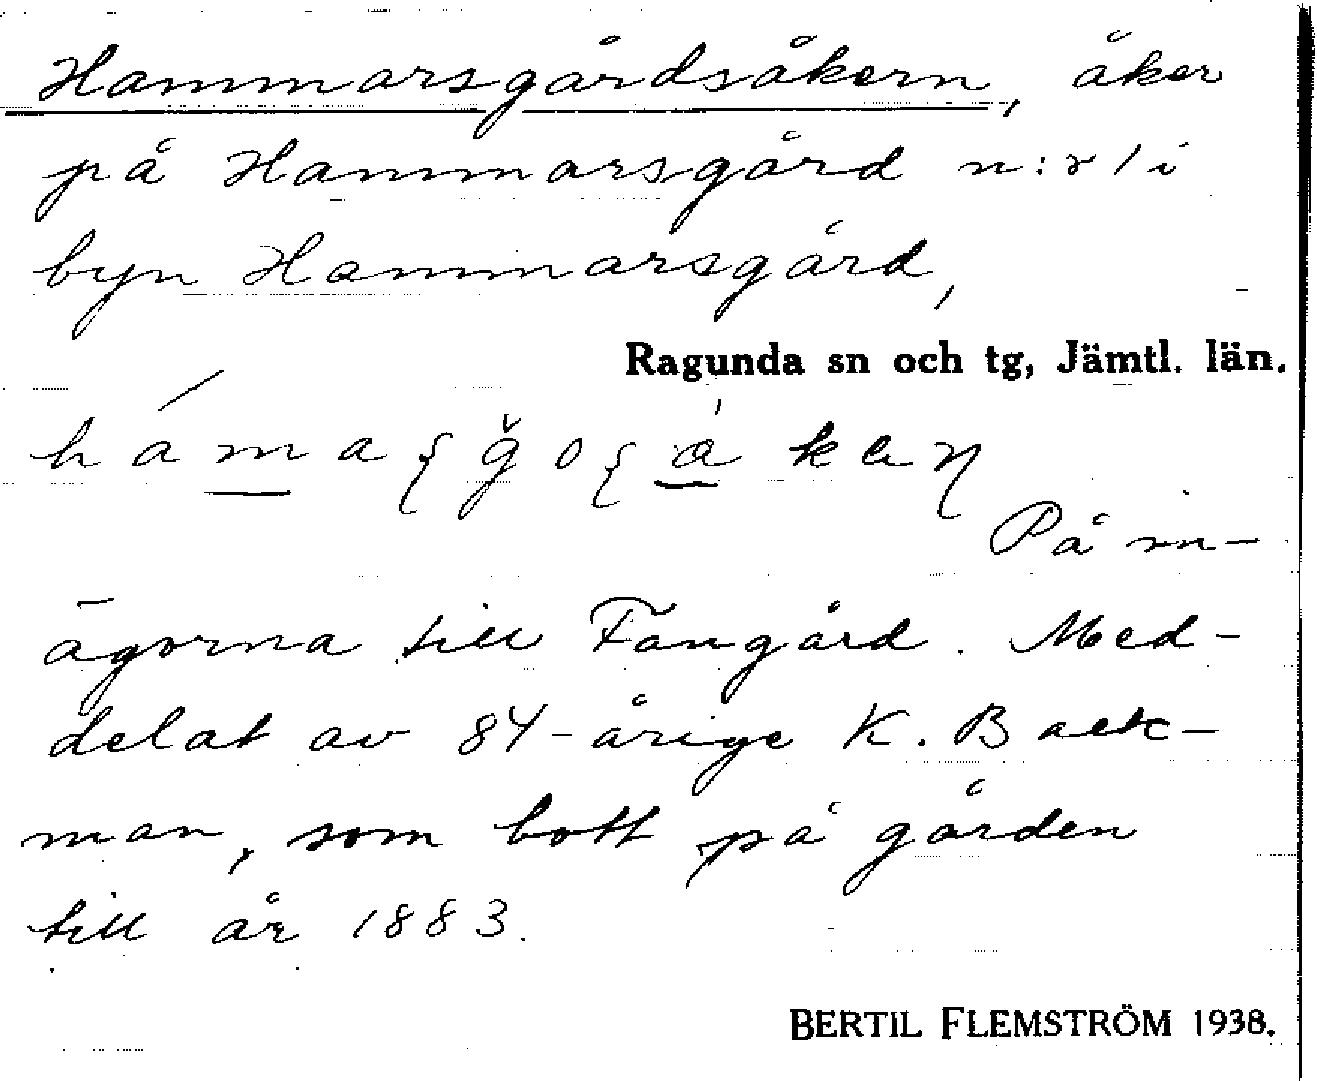 Hammarsgårdsåkern, åker
på Hammarsgård n:r 1 i
byn Hammarsgård,
Ragunda sn och tg, Jämtl. län.
På in-
ägorna till Fangård. Med-
delat av 84-årige K. Back-
man, som bott på gården
till år 1883.
BERTIL FLEMSTRÖM 1938.